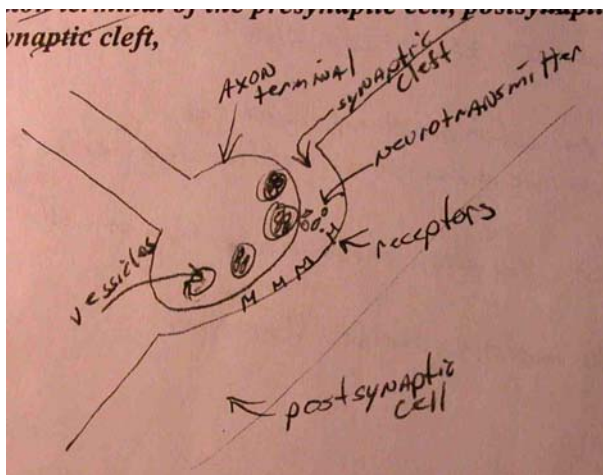 terminal of the presynaptic cell, postsynapti
ynaptic cleft,
AXON
terminal
synaptic
cleft
NEUROTRANSMITTER
receptors
vessicles
postsynaptic
cell